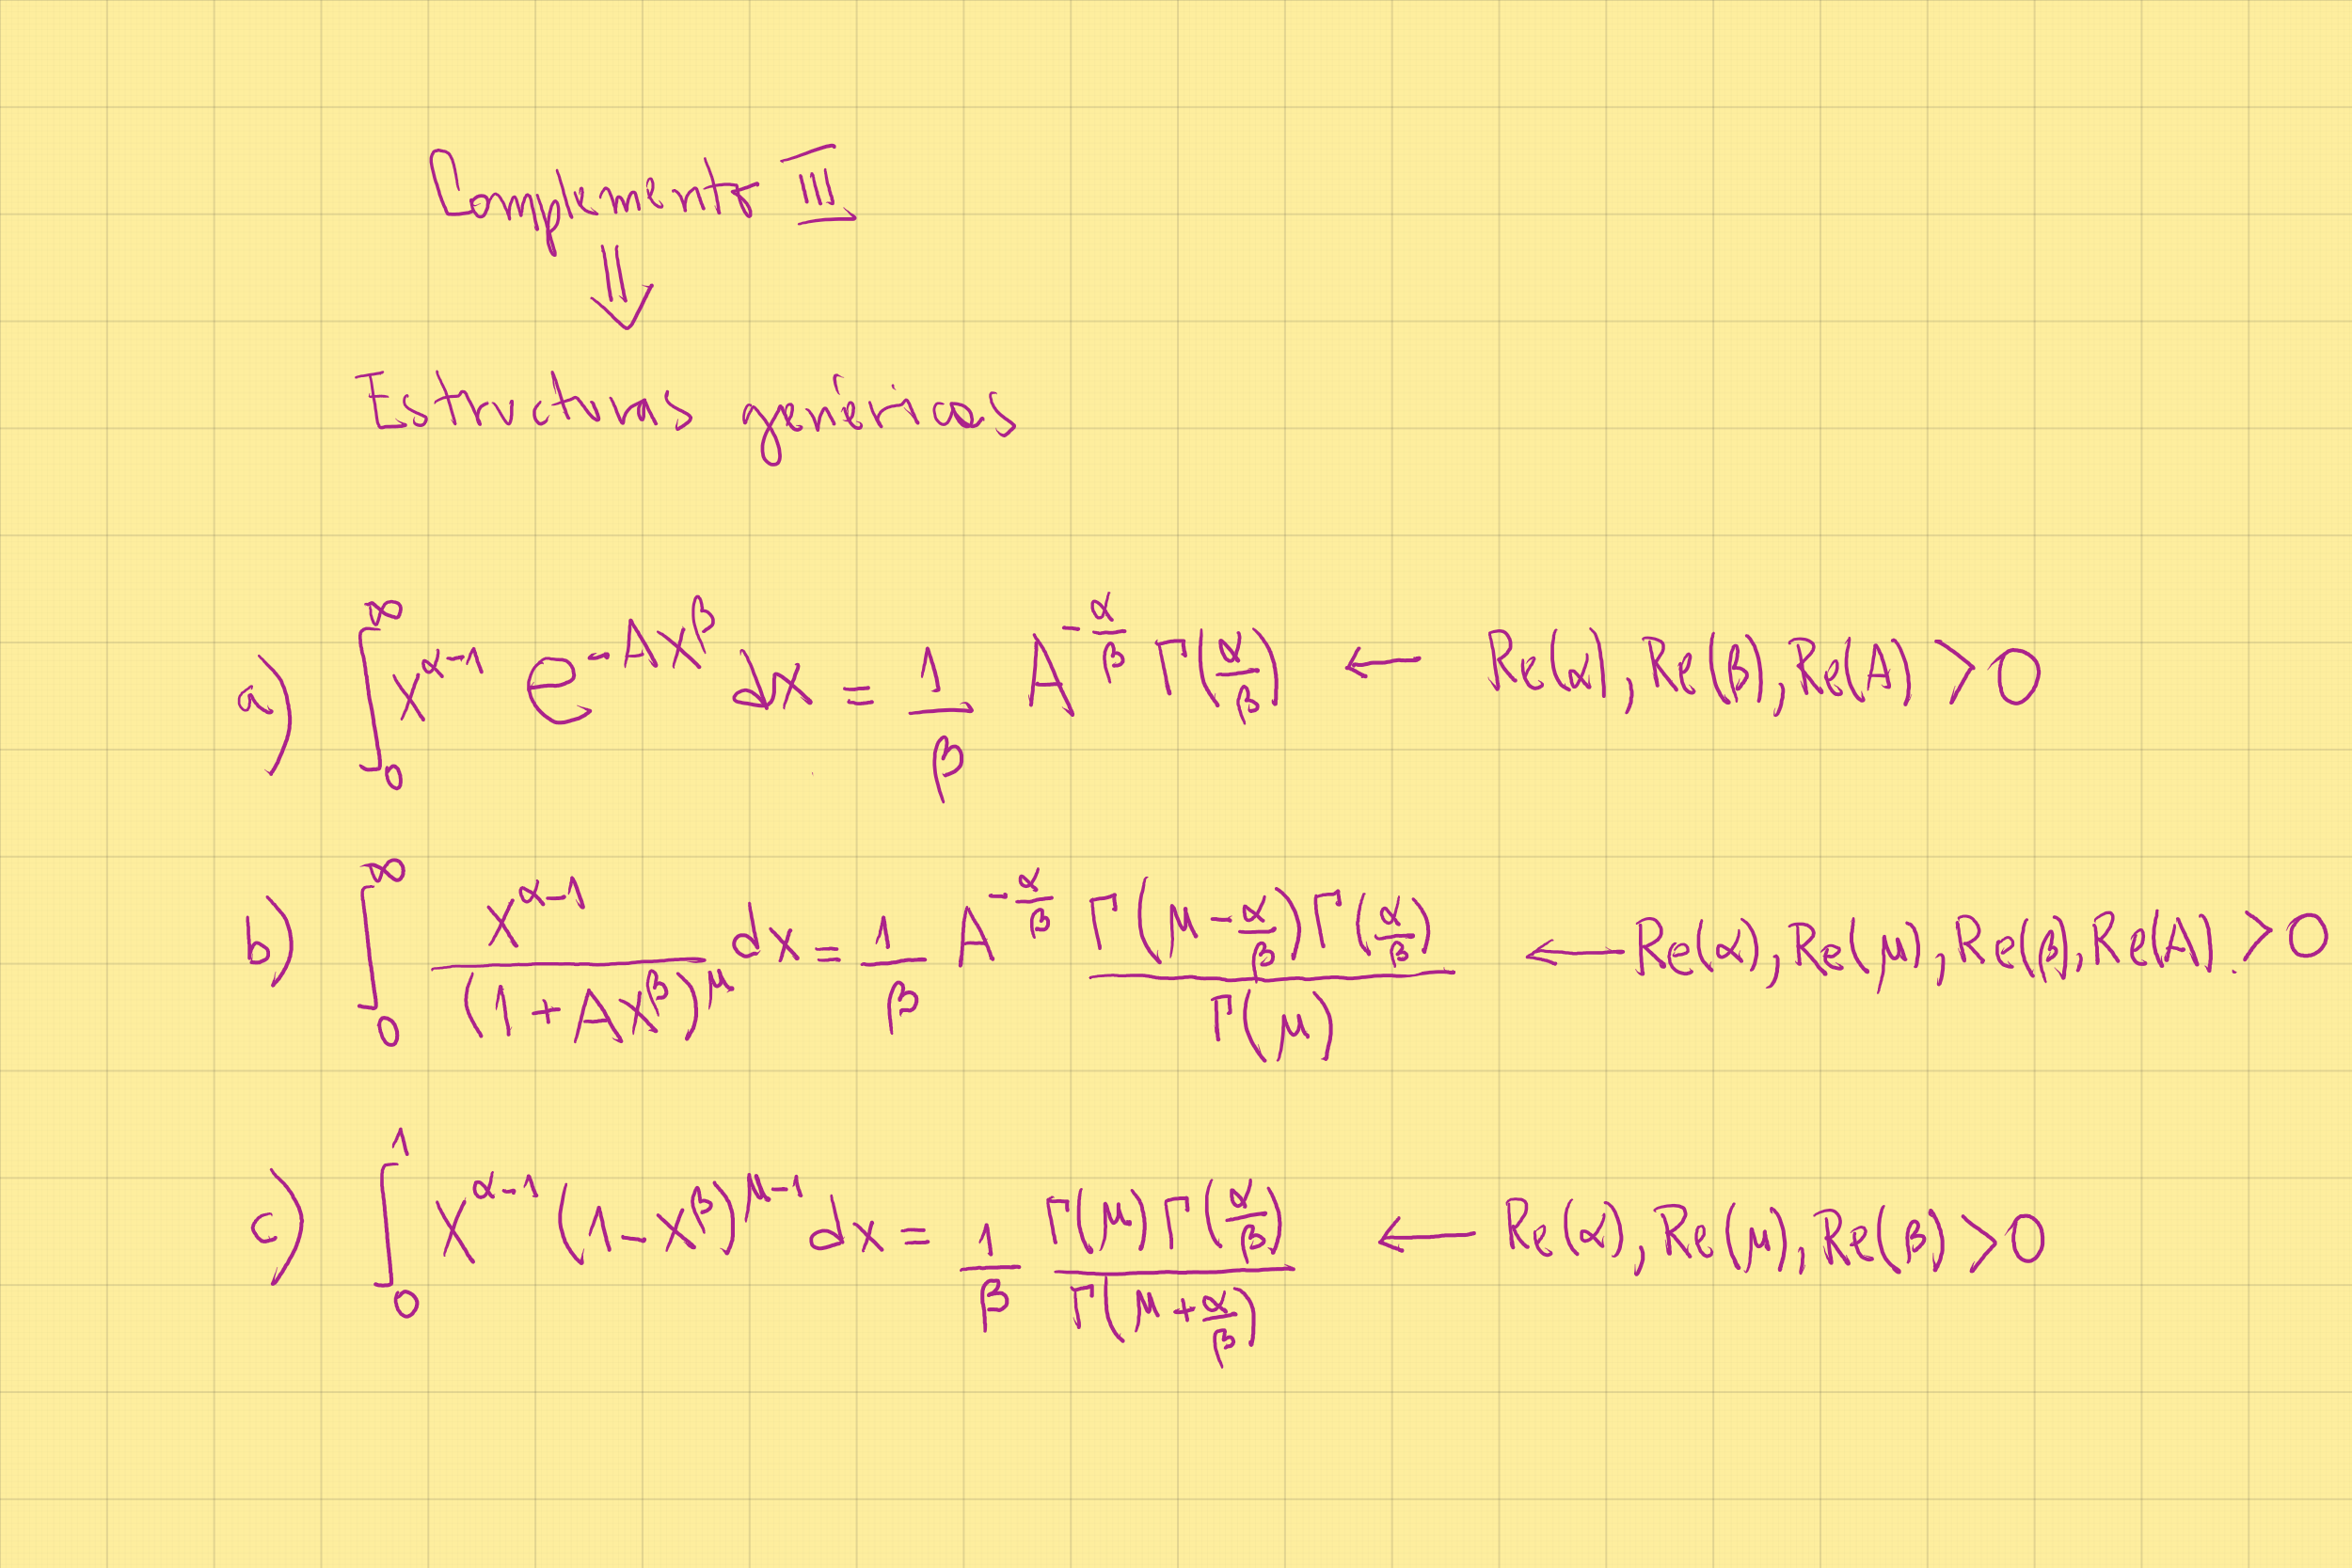 Complemento III
⇓
Estructuras genéricas
a) ∫₀^∞ x^{α-1} e^{-Ax^β} dx = \frac{1}{β} A^{-\frac{α}{β}} Γ(\frac{α}{β}) ← Re(α), Re(β), Re(A) > 0
b) ∫₀^∞ \frac{x^{α-1}}{(1+Ax^β)^μ} dx = \frac{1}{β} A^{-\frac{α}{β}} \frac{Γ(μ-\frac{α}{β})Γ(\frac{α}{β})}{Γ(μ)} ← Re(α), Re(μ), Re(β), Re(A) > 0
c) ∫₀^1 x^{α-1} (1-x^β)^{μ-1} dx = \frac{1}{β} \frac{Γ(μ)Γ(\frac{α}{β})}{Γ(μ+\frac{α}{β})} ← Re(α), Re(μ), Re(β) > 0